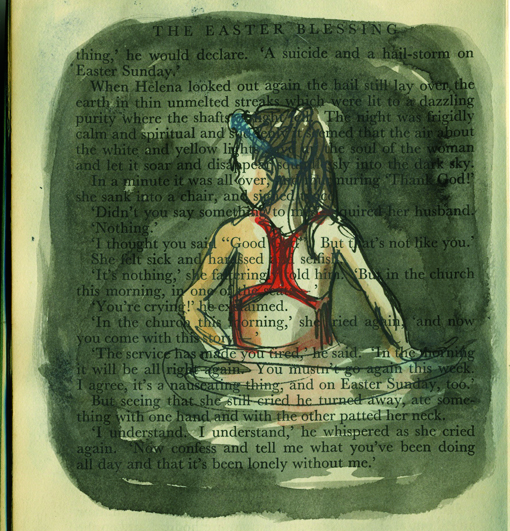 THE EASTER BLESSING
thing,’ he would declare. ‘A suicide and a hail-storm on
Easter Sunday.’
When Helena looked out again the hail still lay over the
earth in thin unmelted streaks which were lit to a dazzling
purity where the shafts light fell. The night was frigidly
calm and spiritual and suddenly it seemed that the air about
the white and yellow light the soul of the woman
and let it soar and disappear into the dark sky.
In a minute it was all over, murmuring ‘Thank God!’
she sank into a chair, and sighed
‘Didn’t you say something to me?’ enquired her husband.
‘Nothing.’
‘I thought you said “Good But that’s not like you.’
She felt sick and harassed and selfish.
‘It’s nothing,’ she faltering told him. ‘But in the church
this morning, in one of the
‘You’re crying!’ he exclaimed.
‘In the church this morning,’ she cried again, ‘and now
you come with this story
‘The service has made you tired,’ he said. ‘In the morning
it will be all right again. You mustn’t go again this week.
I agree, it’s a nauseating thing, and on Easter Sunday, too.’
But seeing that she still cried he turned away, ate some-
thing with one hand and with the other patted her neck.
‘I understand. I understand,’ he whispered as she cried
again. ‘Now confess and tell me what you’ve been doing
all day and that it’s been lonely without me.’